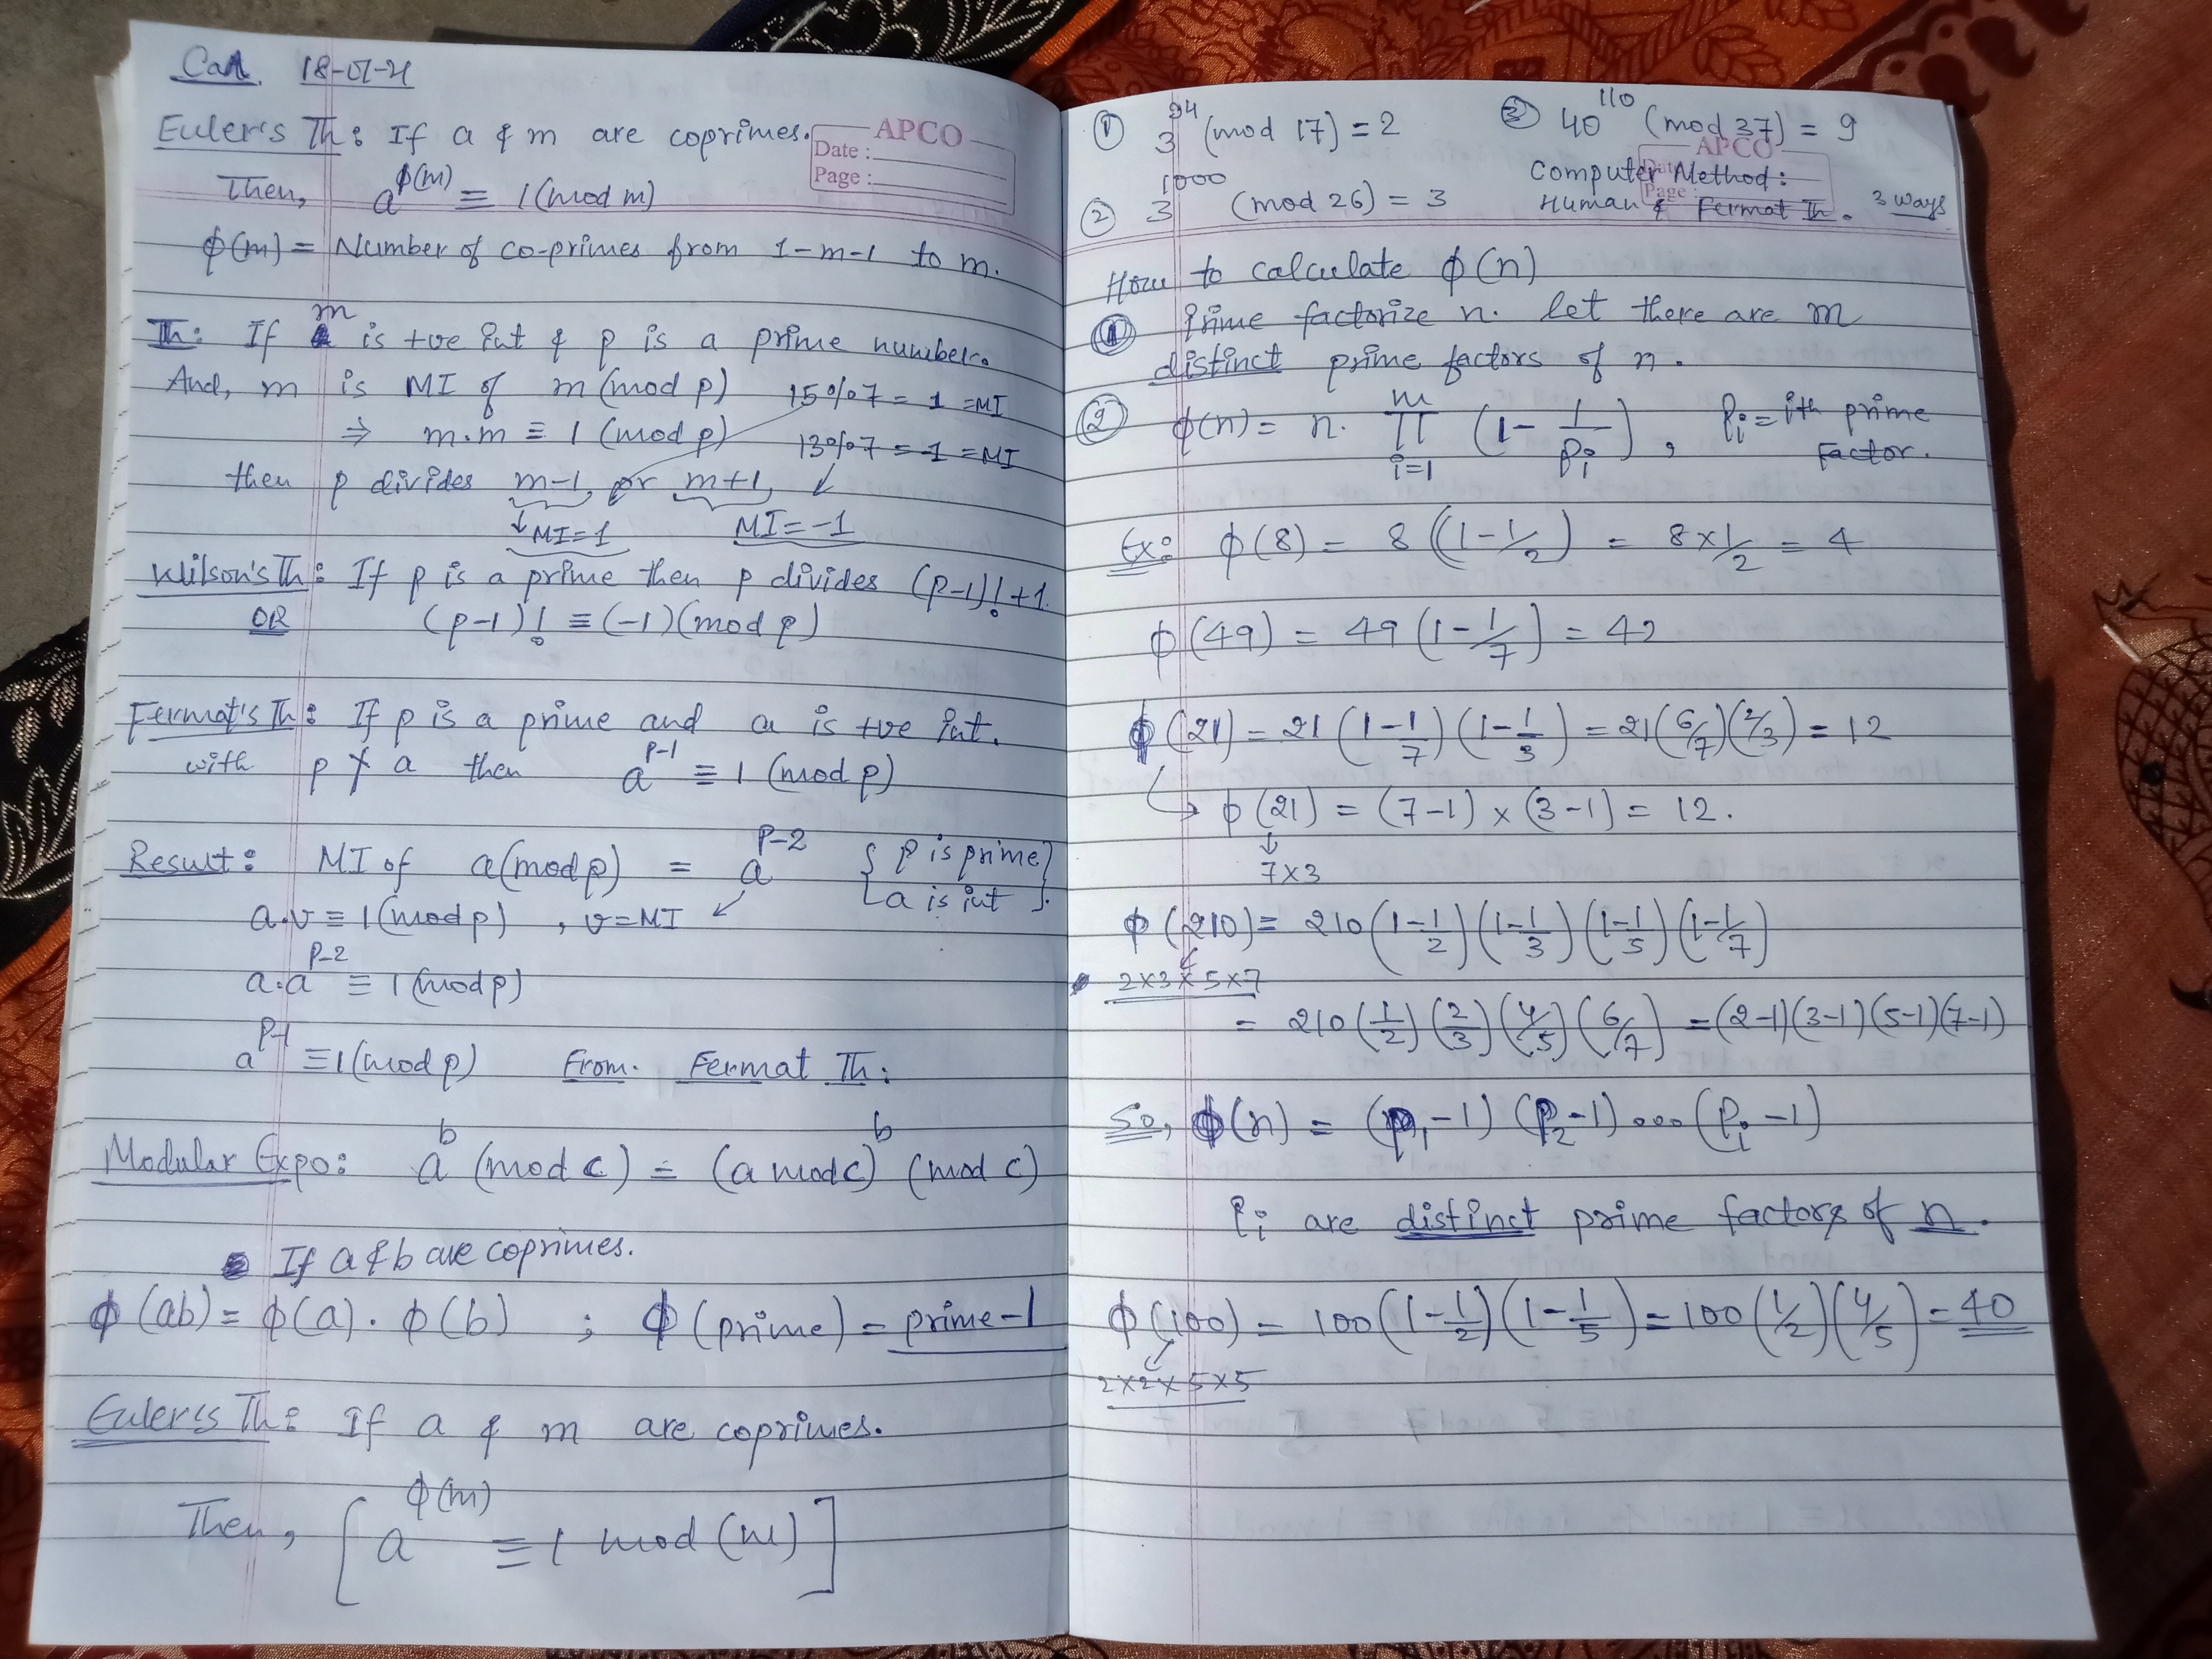 18-01-21
Euler's Th: If a & m are coprimes.
APCO
Date:
Page:
Then, a^φ(m) ≡ 1(mod m)
φ(m) = Number of co-primes from 1-m-1 to m.
Th: If m is +ve int & p is a prime number.
And, m is MI of m(mod p) 15%7 = 1 =MI
⇒ m.m ≡ 1 (mod p) 13%7 = -1 =MI
then p divides m-1, or m+1,
↓MI=1 MI=-1
Wilson's Th: If p is a prime then p divides (p-1)!+1.
OR (p-1)! ≡ (-1)(mod p)
Fermat's Th: If p is a prime and a is +ve int.
with p ∤ a then a^(p-1) ≡ 1 (mod p)
Result: MI of a(mod p) = a^(p-2) {p is prime
a.v ≡ 1(mod p), v=MI a is int}.
a.a^(p-2) ≡ 1(mod p)
a^(p-1) ≡ 1(mod p) From. Fermat Th:
Modular Expo: a^b (mod c) = (a mod c)^b (mod c)
If a & b are coprimes.
φ(ab) = φ(a).φ(b) ; φ(prime) = prime-1
Euler's Th: If a & m are coprimes.
Then, [a^φ(m) ≡ 1 mod (m)]
① (mod 17) = 2 ③ 40^110 (mod 37) = 9
APCO
Computer Method:
Page:
② 3^1000 (mod 26) = 3 Human & Fermat Th. 3 ways
How to calculate φ(n)
① Prime factorize n. let there are m
distinct prime factors of n.
② φ(n) = n. ∏_{i=1}^{m} (1 - 1/Pi), Pi = ith prime
factor.
Ex: φ(8) = 8(1-1/2) = 8×1/2 = 4
φ(49) = 49(1-1/7) = 42
φ(21) = 21(1-1/7)(1-1/3) = 21(6/7)(2/3) = 12
↳ φ(21) = (7-1)×(3-1) = 12.
↓
7×3
φ(210) = 210(1-1/2)(1-1/3)(1-1/5)(1-1/7)
2×3×5×7
= 210(1/2)(2/3)(4/5)(6/7) = (2-1)(3-1)(5-1)(7-1)
So, φ(n) = (p1-1)(p2-1)...(pi-1)
Pi are distinct prime factors of n.
φ(100) = 100(1-1/2)(1-1/5) = 100(1/2)(4/5) = 40
2×2×5×5